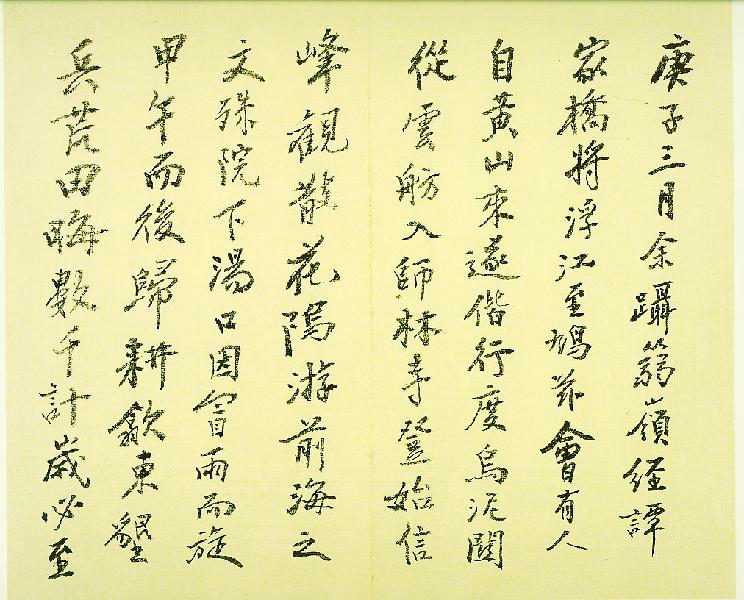 庚子三月余躡篛嶺経譚
家橋將浮江至鳩茲會有人
自黃山來遂偕行度烏泥關
從雲舫入師林寺登始信
峰觀散花隖游前海之
文殊院下湯口因冒雨而旋
甲午而後歸耕歙東墾
兵荒田畮數千計歲必至